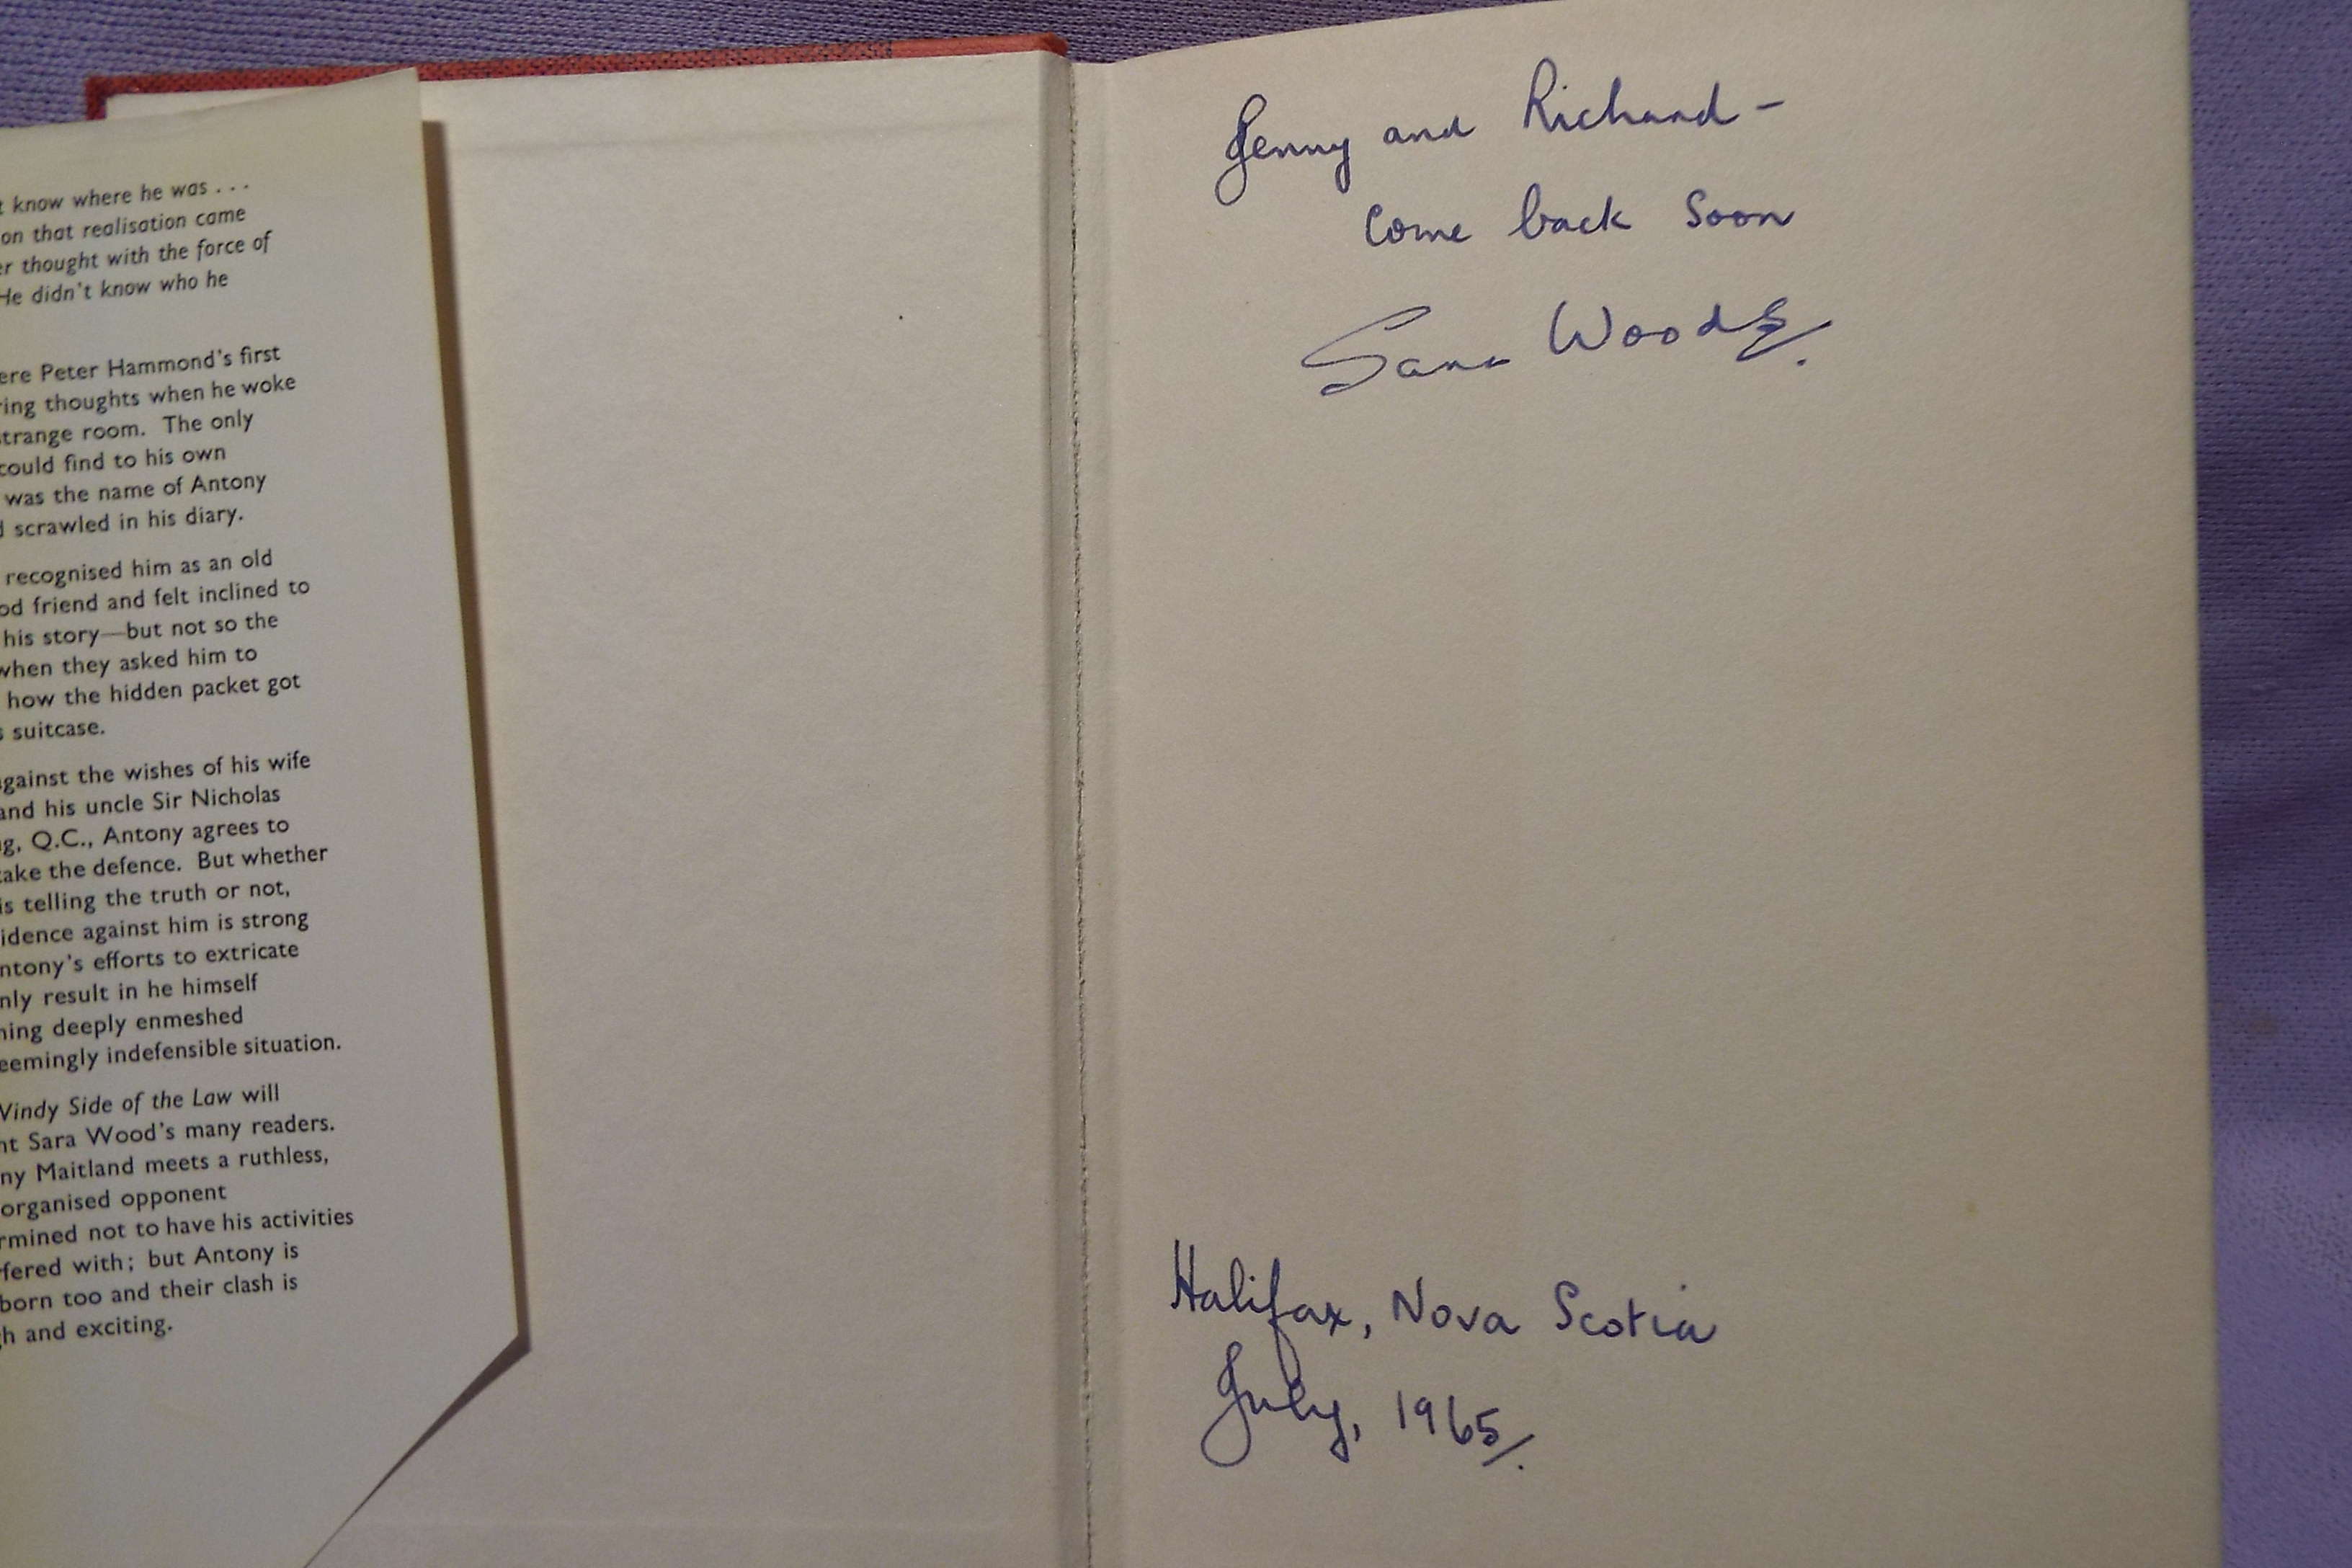 know where he was . . .
on that realisation came
thought with the force of
He didn't know who he
Peter Hammond's first
thoughts when he woke
room. The only
could find to his own
was the name of Antony
scrawled in his diary.
recognised him as an old
friend and felt inclined to
his story—but not so the
when they asked him to
how the hidden packet got
suitcase.
the wishes of his wife
and his uncle Sir Nicholas
Q.C., Antony agrees to
the defence. But whether
is telling the truth or not,
against him is strong
efforts to extricate
result in he himself
deeply enmeshed
indefensible situation.
Side of the Law will
Sara Wood's many readers.
Maitland meets a ruthless,
organised opponent
not to have his activities
with; but Antony is
too and their clash is
and exciting.
Jenny and Richard –
Come back soon
Sara Woods.
Halifax, Nova Scotia
July, 1965.